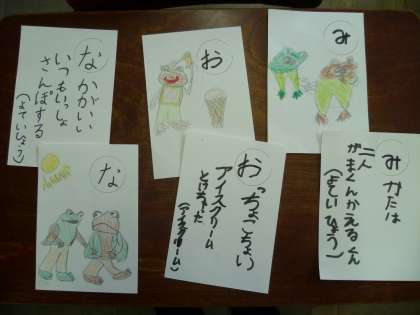 なかがいい
いつもいっしょ
さんぽする
(よていひょう)
お
み
な
おっちょこちょい
アイスクリーム
とけちゃった
(アイスクリーム)
みかたは
二人
がまくんかえるくん
(よていひょう)